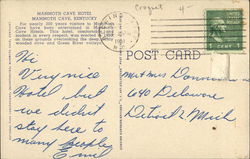 MAMMOTH CAVE HOTEL
MAMMOTH CAVE, KENTUCKY
For nearly 100 years visitors to Mammoth
Cave have been entertained at Mammoth
Cave Hotels. This hotel, comfortable and
modern in every respect, was erected
on these grounds overlooking the deep
wooded cove and Green River valleys.
POST CARD
1 CENT 1
Hi
Very nice
Hotel but
we didn't
stay here to
many people
Mr & Mrs
640 Delaware
Detroit 2 Mich